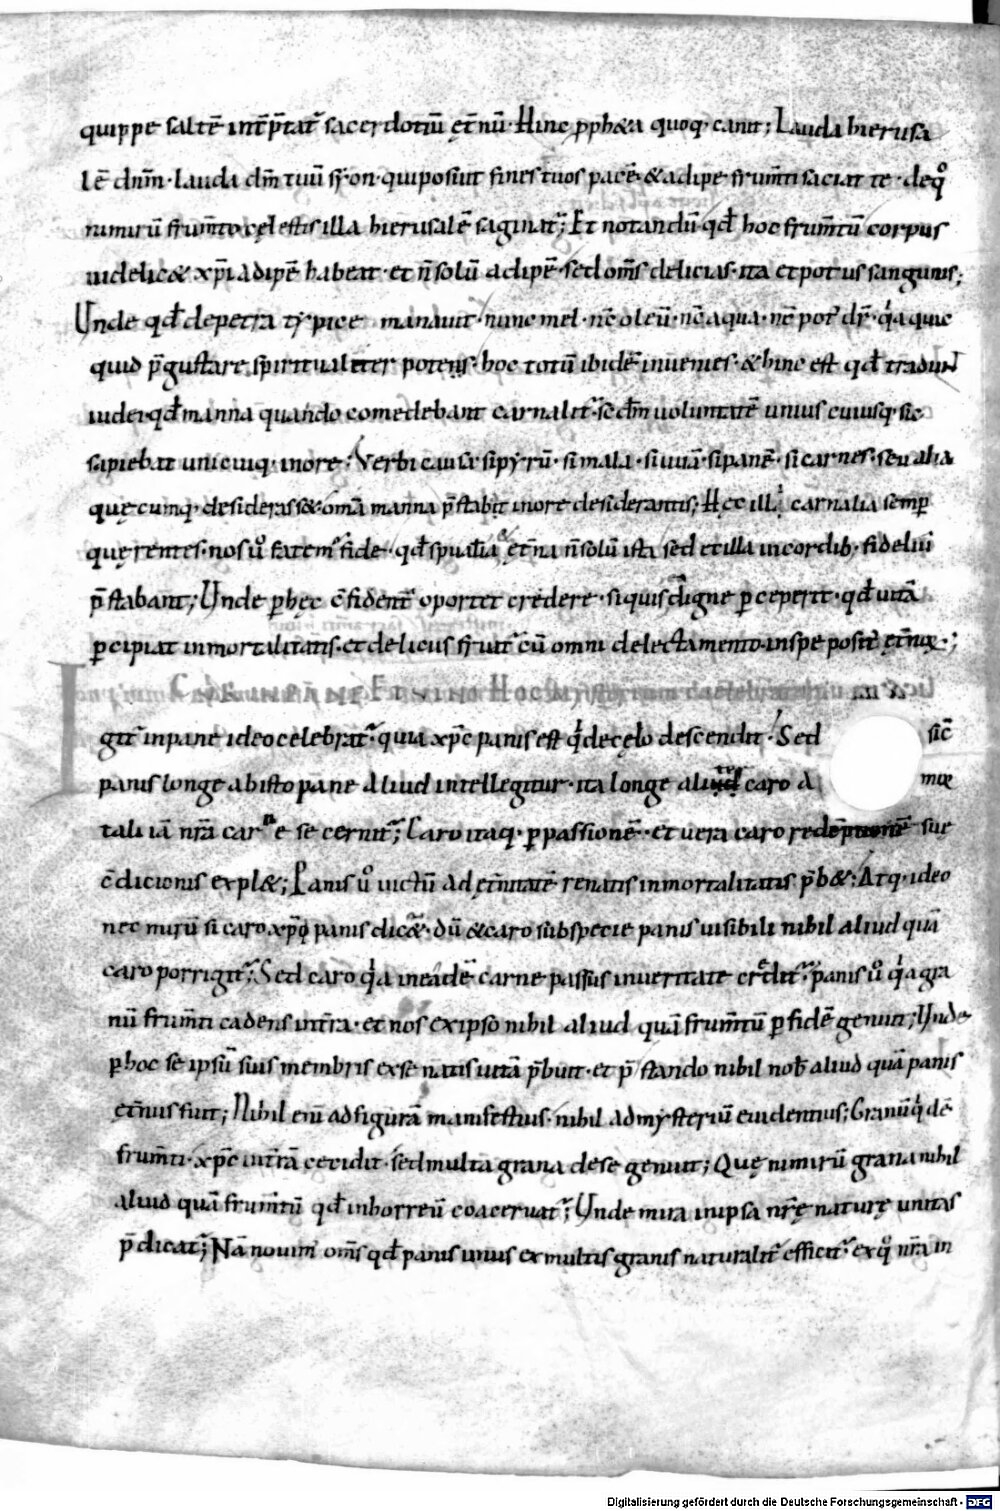 quippe saltē int̄p̄tat᷑ sacerdotiū ęt̄nū· Hinc ꝓph&a quoq· canit; Lauda hierusa
lē dn̄m· lauda dm̄ tuū syon· qui posuit fines tuos pacē· & adipe frum̄ti saciat te· de qͦ
nimirū frum̄to cęlestis illa hierusalē saginat᷑; Et notandū qđ hoc frum̄tū corpus
uidelic& xp̄i adipē habeat· et n̄ solū adipē· sed om̄s delicias· ita et potus sanguinis;
Unde qđ de petra typice manauit· nunc mel· nc̄ oleū· nc̄ aqua· nc̄ pot᷑ dr̄· qͥa quic
quid p̄gustare spiritualiter potens· hoc totū ibidē inuenies· & hinc est qđ tradunt
iudei· qđ manna quando comedebant carnalit᷑· scdm̄ uoluntatē unius cuiusq· sic
sapiebat unicuiq· in ore· Verbi causa si pyrū· si mala· si uuā· si panē· si carnes· seu alia
quęcumq· desiderass&· om̄a manna p̄stabit in ore desiderantis; Hęc illi carnalia semp̄
quęrentes· nos ůo fatem᷑ fide· qđ sp̄ualia & ęt̄na n̄ solū ista sed et illa in cordib· fideliū
p̄stabant; Unde p̱ hęc c̄fident᷑ oportet credere· si quis digne p̱ceperit· qđ uitā
p̱cipiat inmortalitatis· et delicus fruit᷑ cū omni delectamento in spe posit᷑ ęt̄nę·;
CUR IN PANE ET VINO HOC MYSterium caelebratur
Igit᷑ in pane ideo celebrat᷑· quia xp̄c panis est qͥ de cęlo descendit· Sed sic̄
panis longe ab isto pane aliud intellegitur· ita longe aliter caro a mę
tali iā nr̄a carne secernit᷑; Caro itaq· p̱ passionē· et uera caro redēptionē suę
c̄dicionis expl&; Panis ůo uictū ad ęt̄nitatē renatis inmortalitatis p̄b&; Atq· ideo
nec mirū si caro xp̄i panis dicat᷑· dū & caro sub specie panis uisibili nihil aliud quā
caro porrigit᷑; Sed caro qͥa in eadē carne passus in ueritate credit᷑· panis ůo qͥa gra
nū frum̄ti cadens in t̄ra· et nos ex ipso nihil aliud quā frum̄tū p̱ fidē genuit; Unde
p̱ hoc se ipsū suis membris ex se natis uitā p̄buit· et p̄stando nihil nob̄ aliud quā panis
ęt̄nus fuit; Nihil eni ad figurā manifestius· nihil ad mysteriū euidentius; Granū qͥdē
frum̄ti· xp̄c in t̄rā cecidit· sed multa grana de se genuit; Quę nimirū grana nihil
aliud quā frum̄tū qđ in horreū coaceruat᷑; Unde mira in ipsa nr̄ę naturę unitas
p̄dicat᷑; Nā nouim᷑ om̄s qđ panis unus ex multis granis naturalit᷑ efficit᷑· ex qͦ nr̄a in
Digitalisierung gefördert durch die Deutsche Forschungsgemeinschaft - DFG